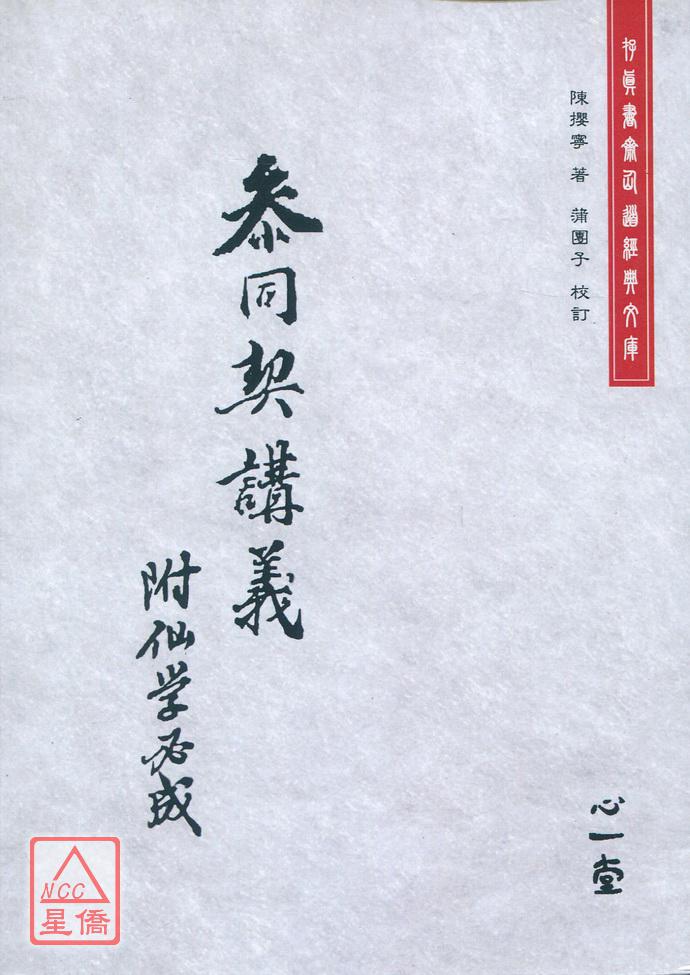 存真書齋仙道經典文庫
陳攖寧 著 蒲團子 校訂
参同契講義
附仙学必成
心一堂
NCC
星僑